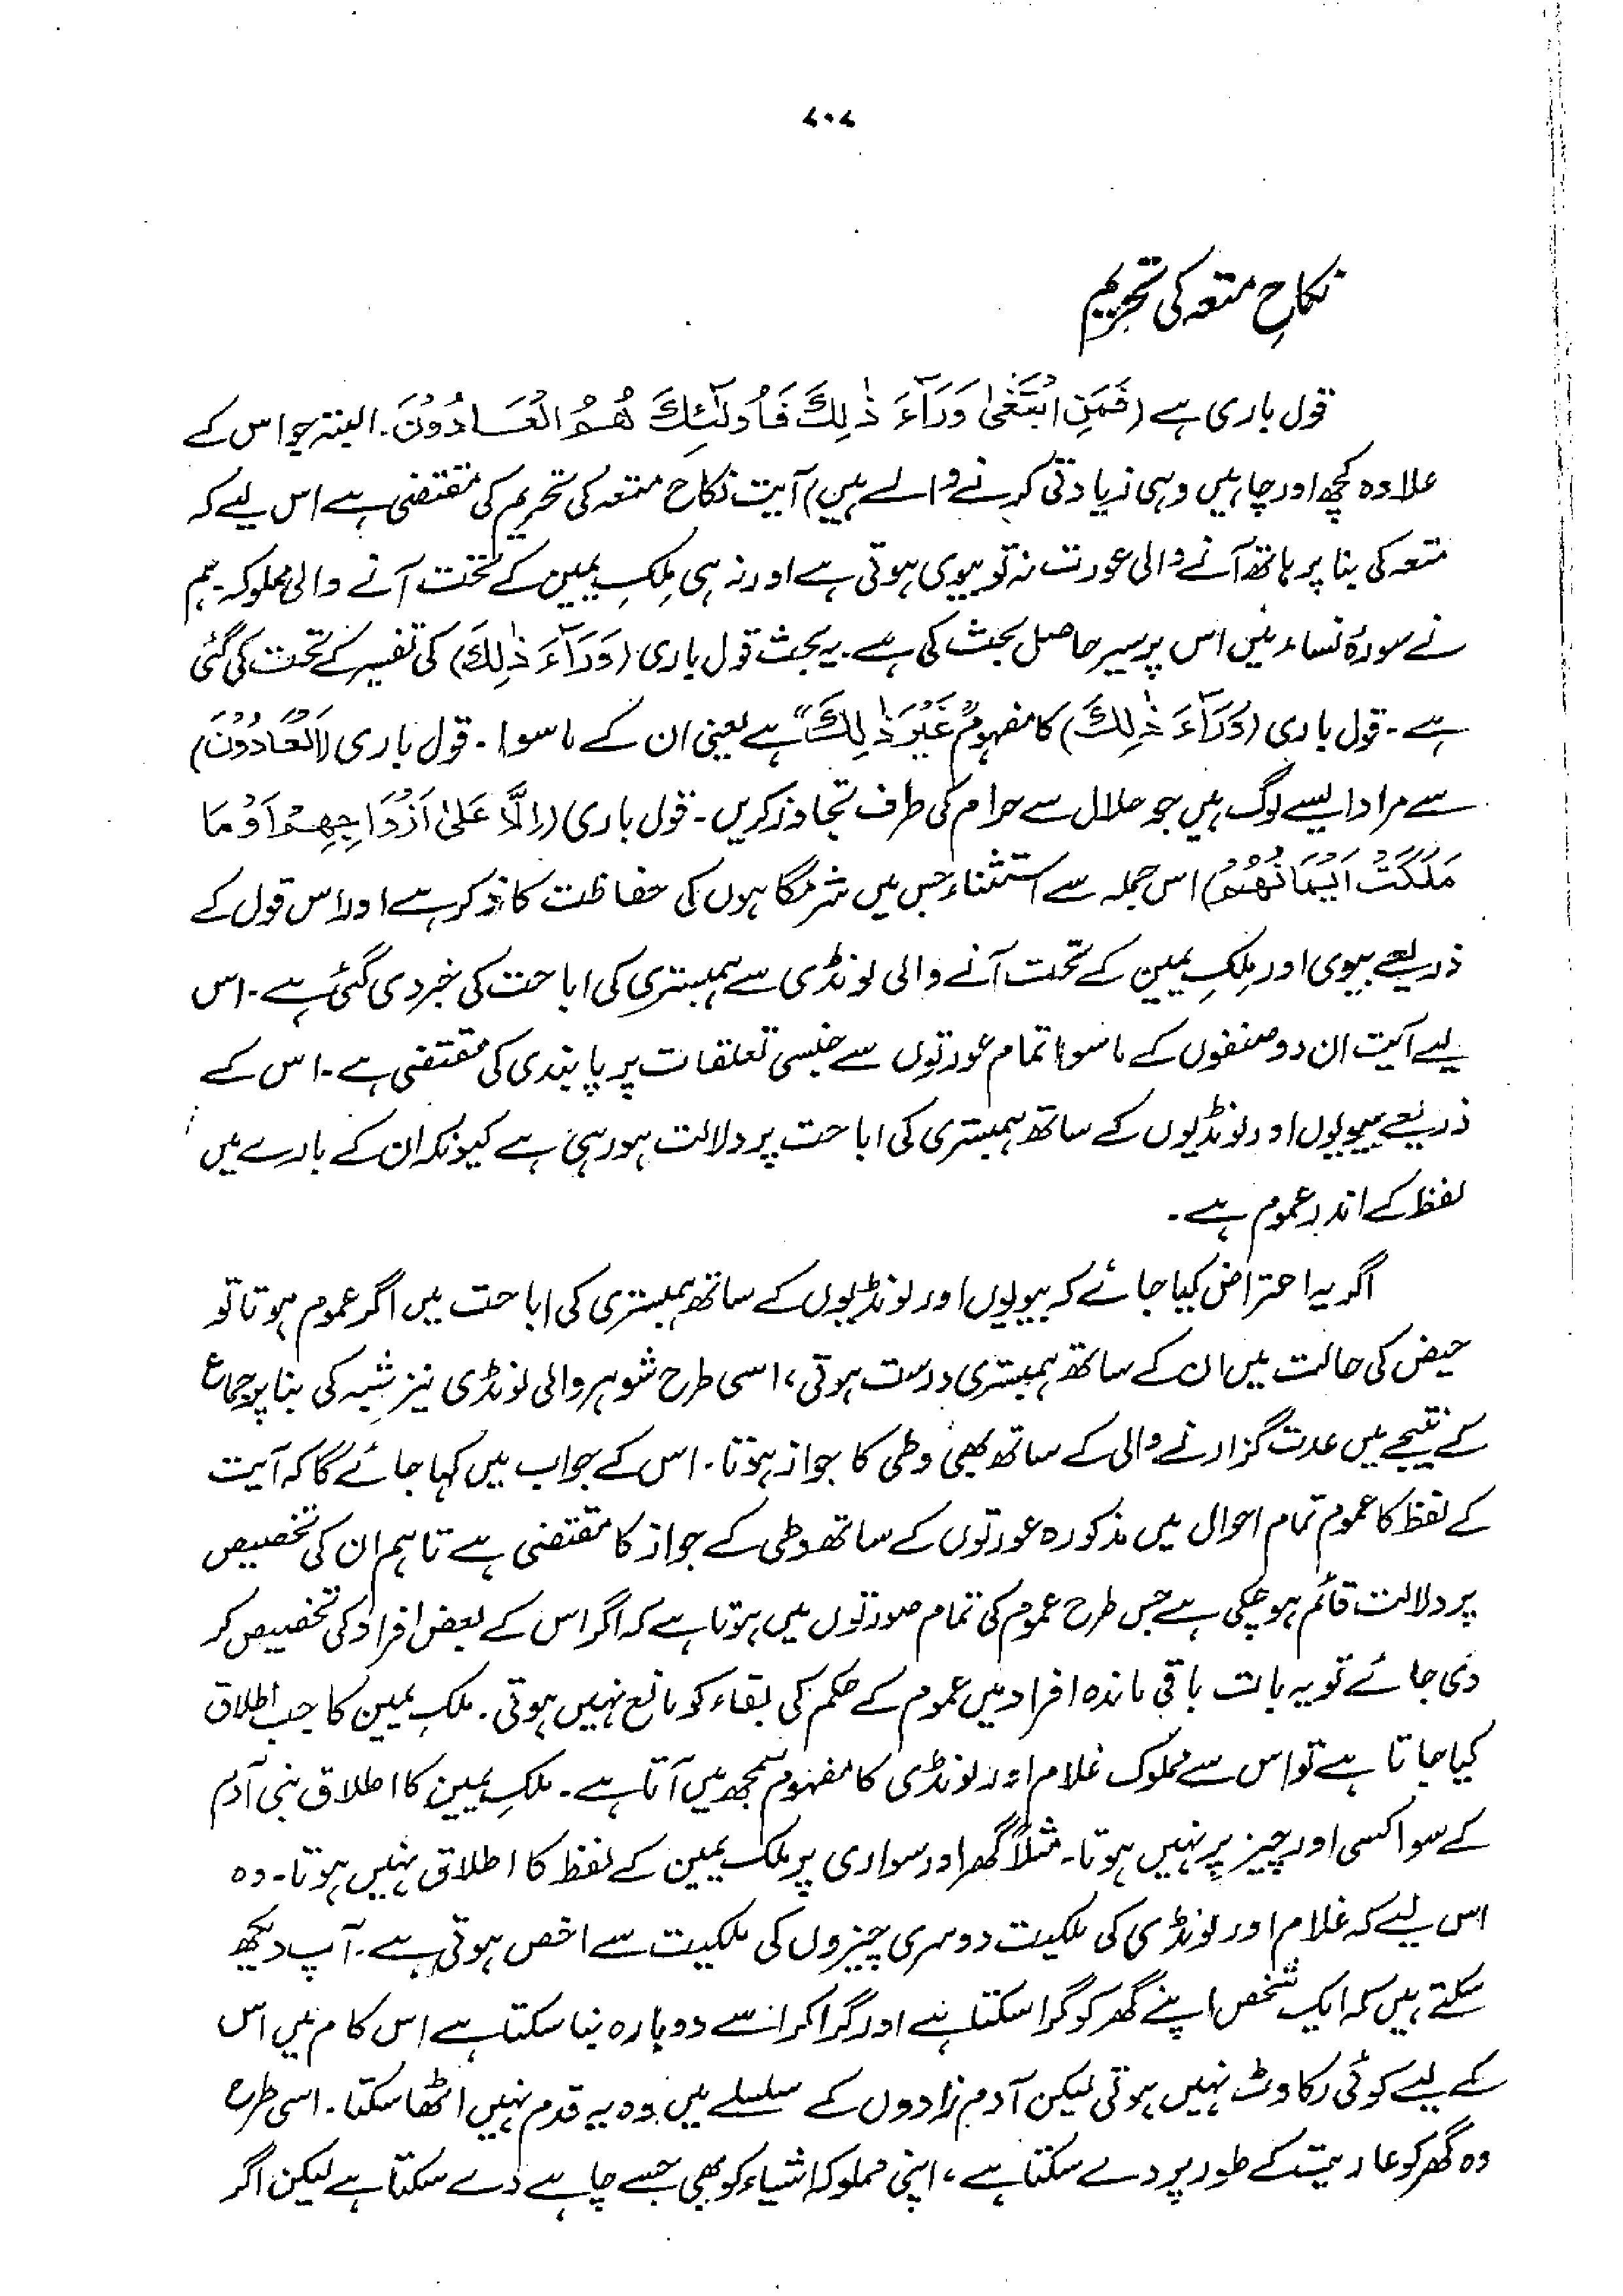 ۷۰۷
نکاحِ متعہ کی تحریم
قول باری ہے (فَمَنِ ابْتَغٰى وَرَآءَ ذٰلِكَ فَاُولٰٓئِكَ هُمُ الْعَادُوْنَ۔ البتہ جو اس کے
علاوہ کچھ اور چاہیں وہی زیادتی کرنے والے ہیں) آیت نکاح متعہ کی تحریم کی مقتضی ہے اس لیے کہ
متعہ کی بنا پر ہاتھ آنے والی عورت نہ تو بیوی ہوتی ہے اور نہ ہی مِلکِ یمین کے تحت آنے والی مملوکہ۔ ہم
نے سورۂ نساء میں اس پر سیر حاصل بحث کی ہے۔ یہ بحث قول باری (وَرَآءَ ذٰلِكَ) کی تفسیر کے تحت کی گئی
ہے۔ قول باری (وَرَآءَ ذٰلِكَ) کا مفہوم "غَيْرَ ذٰلِكَ" ہے یعنی ان کے ماسوا۔ قول باری (اَلْعَادُوْنَ)
سے مراد ایسے لوگ ہیں جو حلال سے حرام کی طرف تجاوز کریں۔ قول باری (اِلَّا عَلٰى اَزْوَاجِهِمْ اَوْ مَا
مَلَكَتْ اَيْمَانُهُمْ) اس جملہ سے استثناء جس میں شرمگاہوں کی حفاظت کا ذکر ہے اور اس قول کے
ذریعے بیوی اور مِلکِ یمین کے تحت آنے والی لونڈی سے ہمبستری کی اباحت کی خبر دی گئی ہے۔ اس
لیے آیت ان دو صنفوں کے ماسوا تمام عورتوں سے جنسی تعلقات پر پابندی کی مقتضی ہے۔ اس کے
ذریعے بیویوں اور لونڈیوں کے ساتھ ہمبستری کی اباحت پر دلالت ہو رہی ہے کیونکہ ان کے بارے میں
لفظ کے اندر عموم ہے۔
اگر یہ اعتراض کیا جائے کہ بیویوں اور لونڈیوں کے ساتھ ہمبستری کی اباحت میں اگر عموم ہوتا تو
حیض کی حالت میں ان کے ساتھ ہمبستری درست ہوتی، اسی طرح شوہر والی لونڈی نیز شبہ کی بنا پر جماع
کے نتیجے میں عدت گزارنے والی کے ساتھ بھی وطی کا جواز ہوتا۔ اس کے جواب میں کہا جائے گا کہ آیت
کے لفظ کا عموم تمام احوال میں مذکورہ عورتوں کے ساتھ وطی کے جواز کا مقتضی ہے تاہم ان کی تخصیص
پر دلالت قائم ہو چکی ہے جس طرح عموم کی تمام صورتوں میں ہوتا ہے کہ اگر اس کے بعض افراد کی تخصیص کر
دی جائے تو یہ بات باقی ماندہ افراد میں عموم کے حکم کی بقاء کو مانع نہیں ہوتی۔ ملکِ یمین کا جب اطلاق
کیا جاتا ہے تو اس سے مملوک غلام اور لونڈی کا مفہوم سمجھ میں آتا ہے۔ ملکِ یمین کا اطلاق بنی آدم
کے سوا کسی اور چیز پر نہیں ہوتا۔ مثلاً گھر اور سواری پر ملک یمین کے لفظ کا اطلاق نہیں ہوتا۔ وہ
اس لیے کہ غلام اور لونڈی کی ملکیت دوسری چیزوں کی ملکیت سے اخص ہوتی ہے۔ آپ دیکھ
سکتے ہیں کہ ایک شخص اپنے گھر کو گرا سکتا ہے اور گرا کر اسے دوبارہ بنا سکتا ہے اس کام میں اس
کے لیے کوئی رکاوٹ نہیں ہوتی لیکن آدم زادوں کے سلسلے میں وہ یہ قدم نہیں اٹھا سکتا۔ اسی طرح
وہ گھر کو عاریت کے طور پر دے سکتا ہے، اپنی مملوکہ اشیاء کو بھی جسے چاہے دے سکتا ہے لیکن اگر